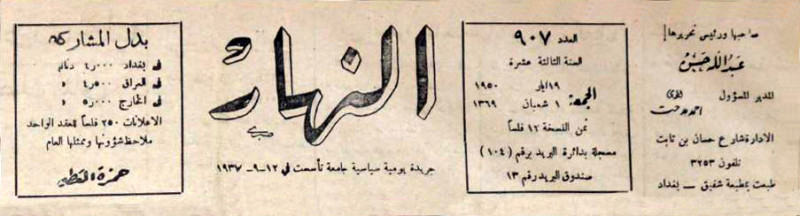 صاحبها ورئيس تحريرها
عبدالله حسن
المدير المسؤول
احمد مدحت
الادارة شارع حسان بن ثابت
تلفون ٣٢٥٣
طبعت بمطبعة شفيق — بغداد
العدد ٩٠٧
السنة الثالثة عشرة
الجمعة
١٩ ايار ١٩٥٠
١ شعبان ١٣٦٩
ثمن النسخة ١٢ فلساً
مسجلة بدائرة البريد برقم (١٠٤)
صندوق البريد رقم ١٣
النهار
جريدة يومية سياسية جامعة تأسست في ١٢-٩-١٩٣٧
بدل المشاركة
في بغداد ٤٫٠٠٠ دنانير
في العراق ٤٫٥٠٠ »
في الخارج ٥٫٠٠٠ »
الاعلانات ٢٥٠ فلساً للعقد الواحد
ملاحظ شؤونها وممثلها العام
حمزة